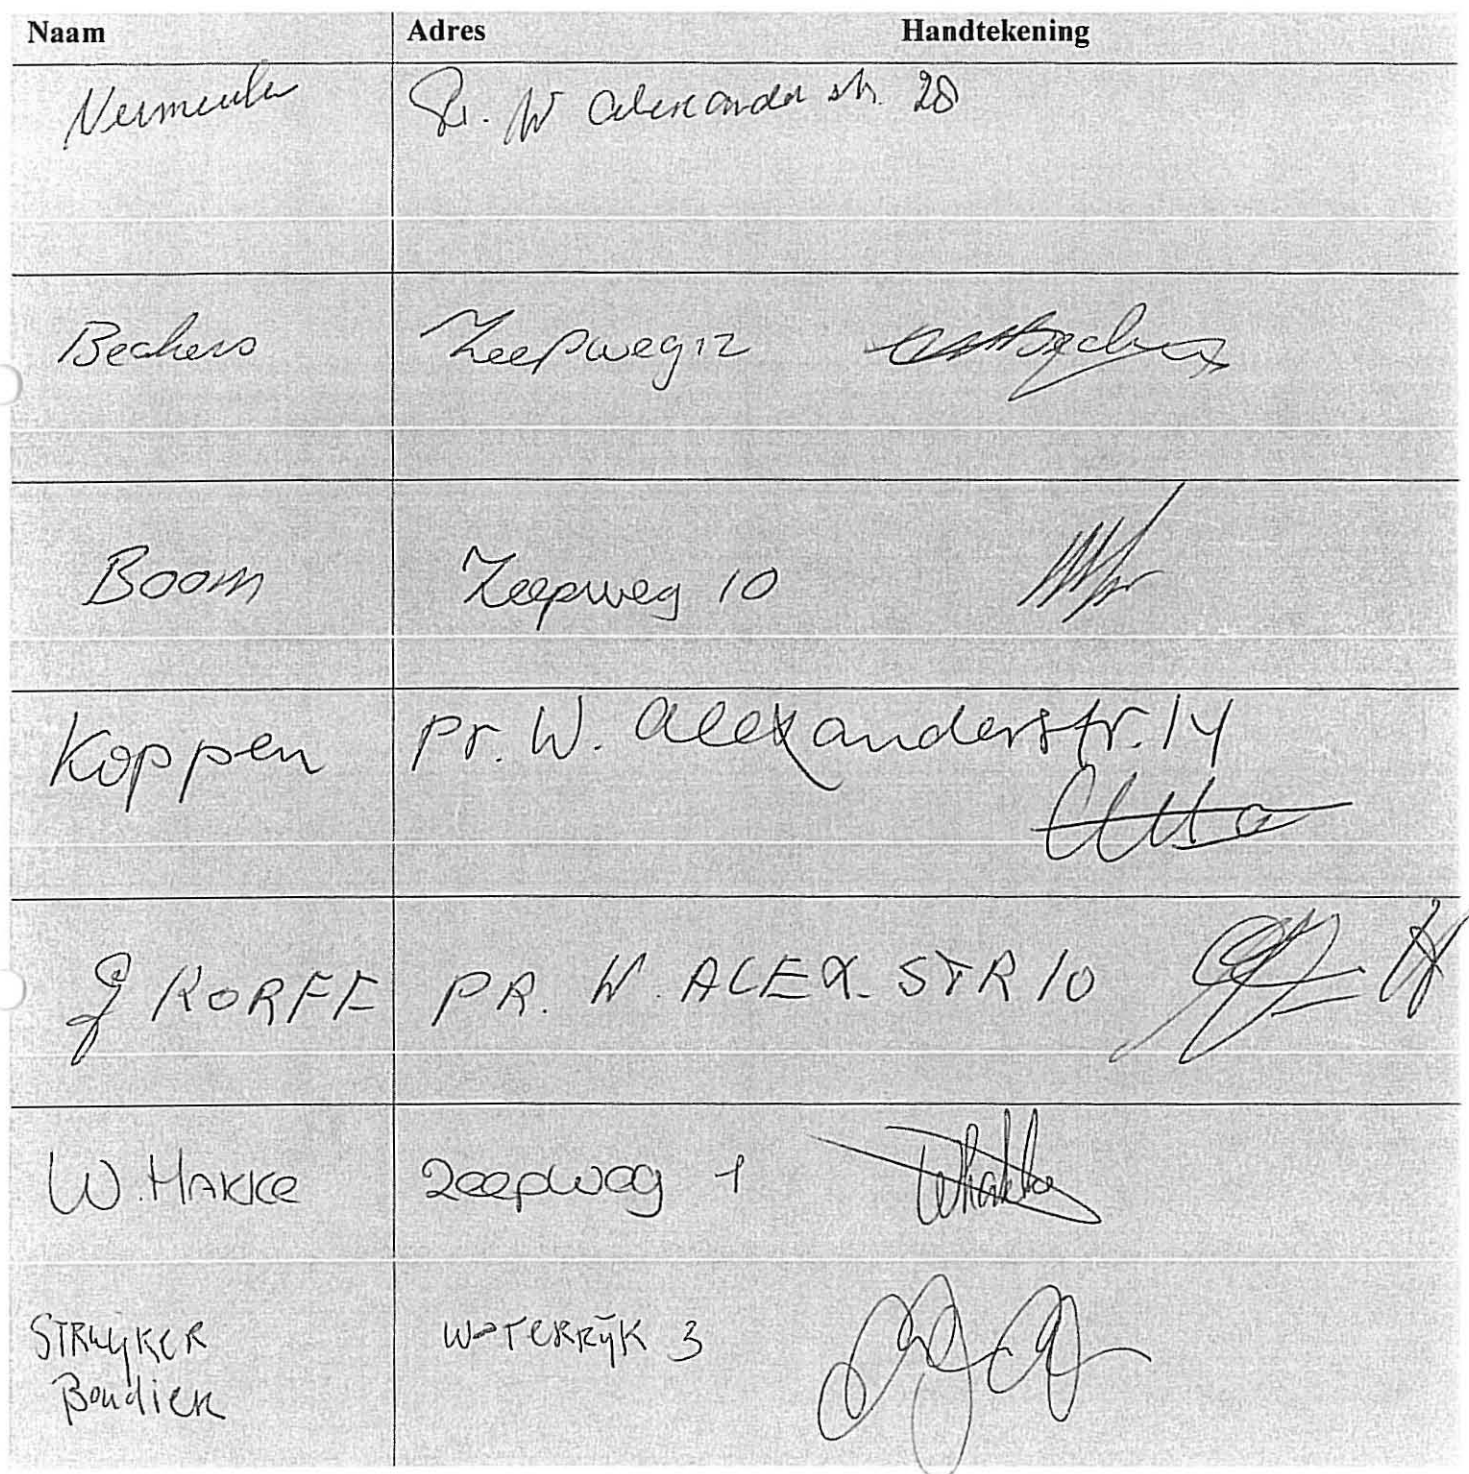 Naam Adres Handtekening
Vermeulen Pr. W Alexander str. 28
Beckers Zeepweg 12
Boom Zeepweg 10
Koppen pr. W. Alexanderstr. 14
J KORFF PR. W. ALEX. STR 10
W. HAKKE Zeepweg 1 WHakke
STRUYKER WATERRYK 3
Boudier